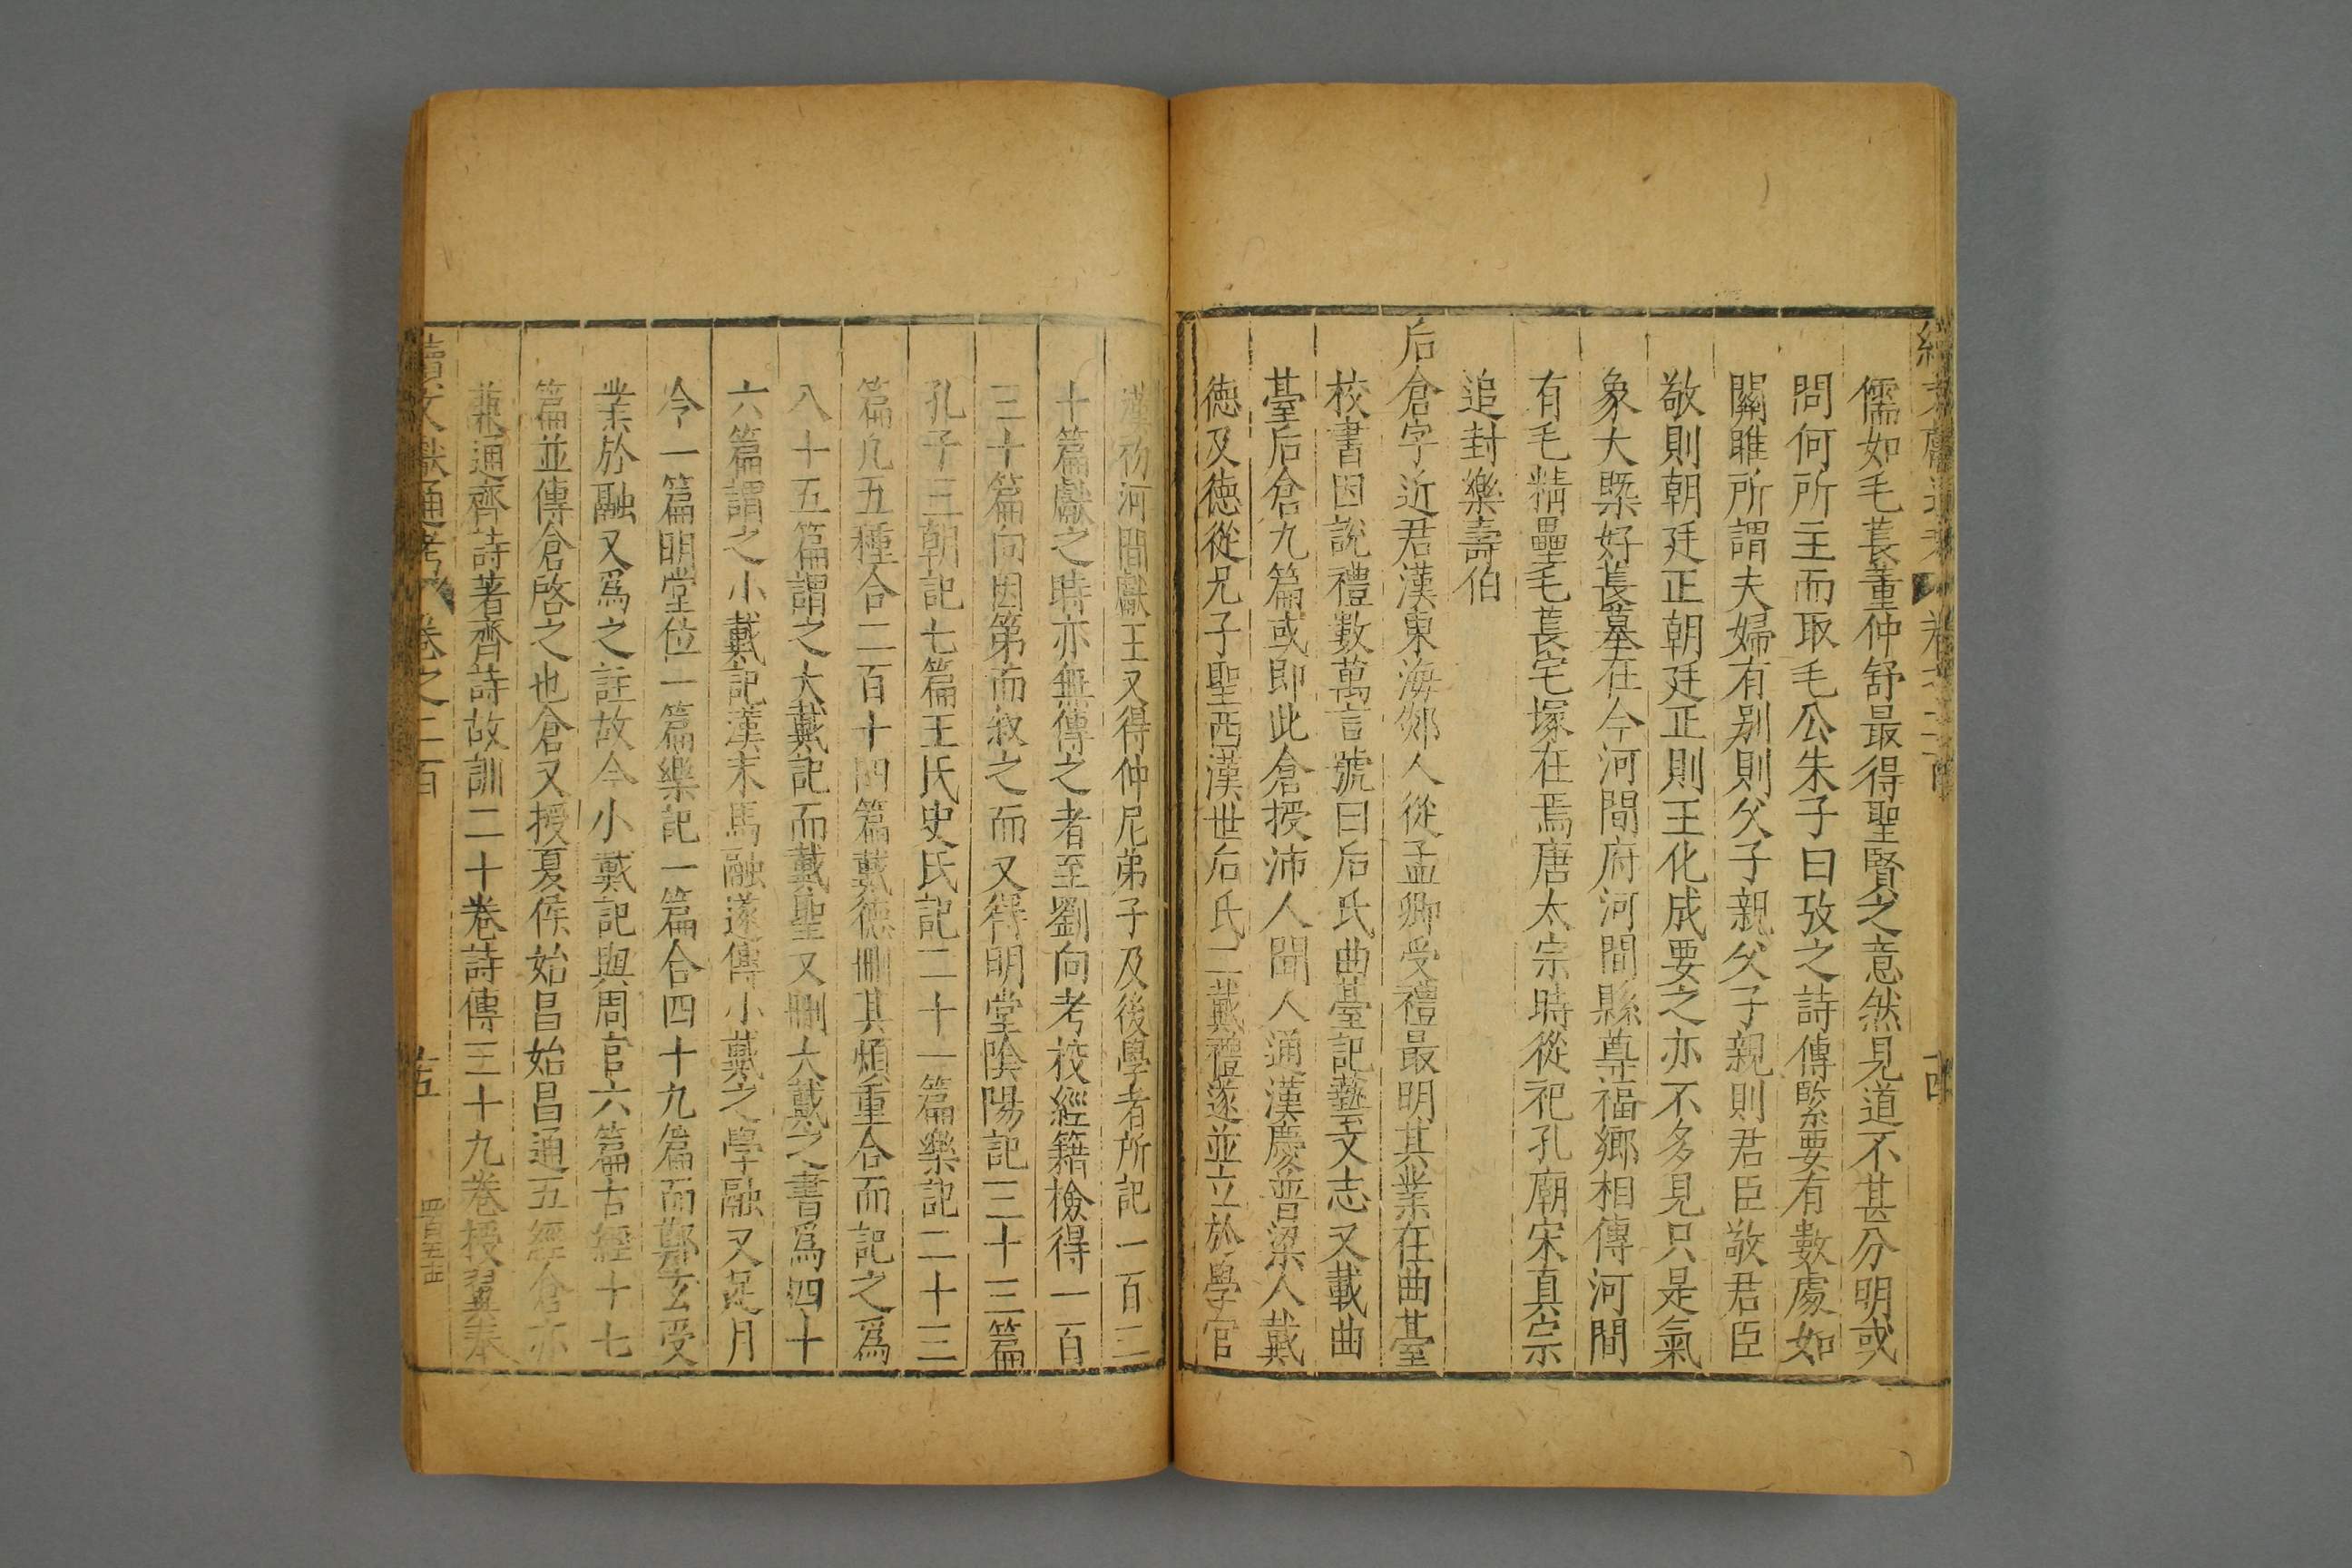 儒如毛萇董仲舒最得聖賢之意然見道不甚分明或
問何所主而取毛公朱子曰攷之詩傳緊要有數處如
關雎所謂夫婦有别則父子親父子親則君臣敬君臣
敬則朝廷正朝廷正則王化成要之亦不多見只是氣
象大槩好萇墓在今河間府河間縣尊福鄉相傳河間
有毛精壘毛萇宅塚在焉唐太宗時從祀孔廟宋真宗
追封樂壽伯
后倉字近君漢東海郯人從孟卿受禮最明其業在曲臺
校書因說禮數萬言號曰后氏曲臺記藝文志又載曲
臺后倉九篇或即此倉授沛人聞人通漢慶普梁人戴
德及德從兄子聖西漢世后氏二戴禮遂並立於學官
漢初河間獻王又得仲尼弟子及後學者所記一百三
十篇獻之時亦無傳之者至劉向考校經籍檢得一百
三十篇向因第而叙之而又得明堂陰陽記三十三篇
孔子三朝記七篇王氏史氏記二十一篇樂記二十三
篇凡五種合二百十四篇戴德刪其煩重合而記之爲
八十五篇謂之大戴記而戴聖又刪大戴之書爲四十
六篇謂之小戴記漢末馬融遂傳小戴之學融又足月
令一篇明堂位一篇樂記一篇合四十九篇而鄭玄受
業於融又爲之註故今小戴記與周官六篇古經十七
篇並傳倉啓之也倉又授夏侯始昌始昌通五經倉亦
兼通齊詩著齊詩故訓二十卷詩傳三十九卷授翼奉
續文獻通考 卷之二百 十五